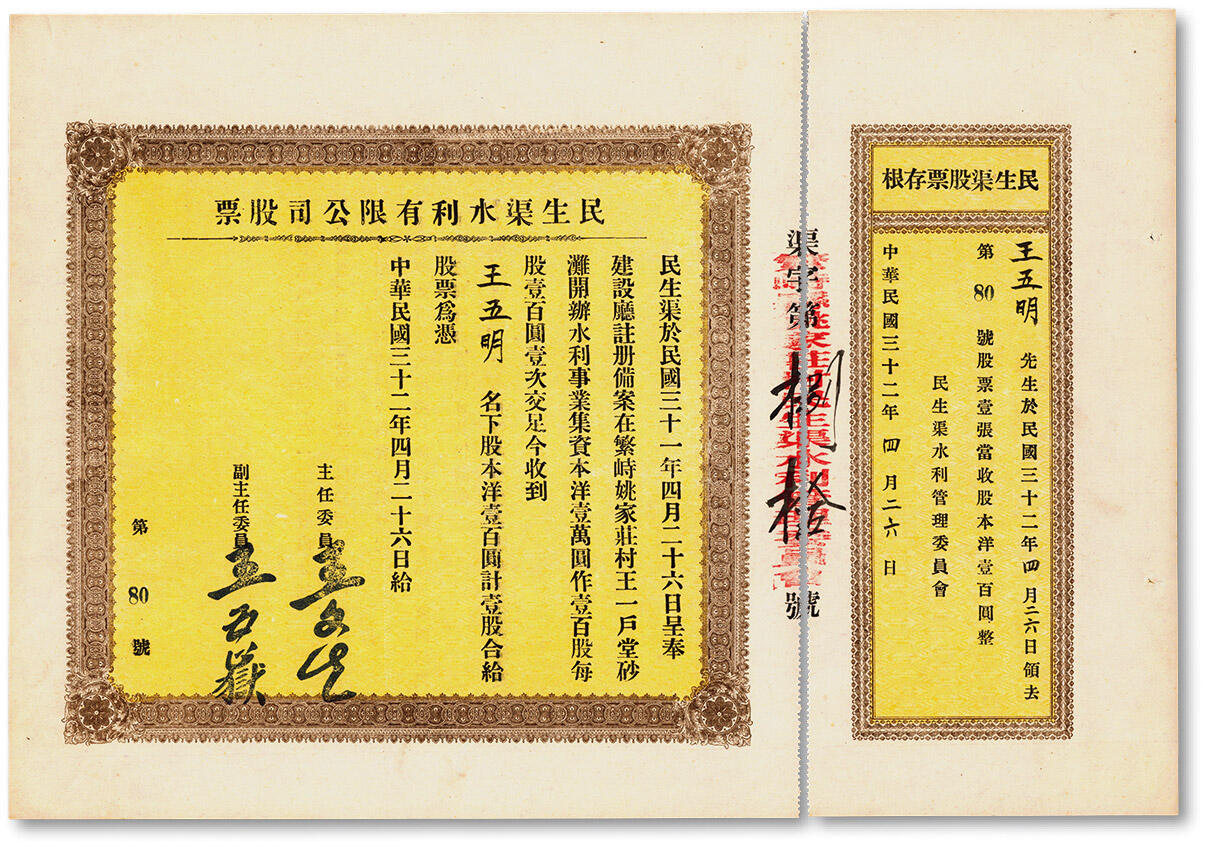 民生渠水利有限公司股票
民生渠於民國三十一年四月二十六日呈奉
建設廳註册備案在繁峙姚家莊村王一戶堂砂
灘開辦水利事業集資本洋壹萬圓作壹百股每
股壹百圓壹次交足今收到
王五明 名下股本洋壹百圓計壹股合給
股票爲憑
中華民國三十二年四月二十六日給
主任委員
副主任委員 王五嶽
第 80 號
渠字第捌拾號
民生渠股票存根
王五明 先生於民國三十二年四月二六日領去
第 80 號股票壹張當收股本洋壹百圓整
民生渠水利管理委員會
中華民國三十二年四月二六日